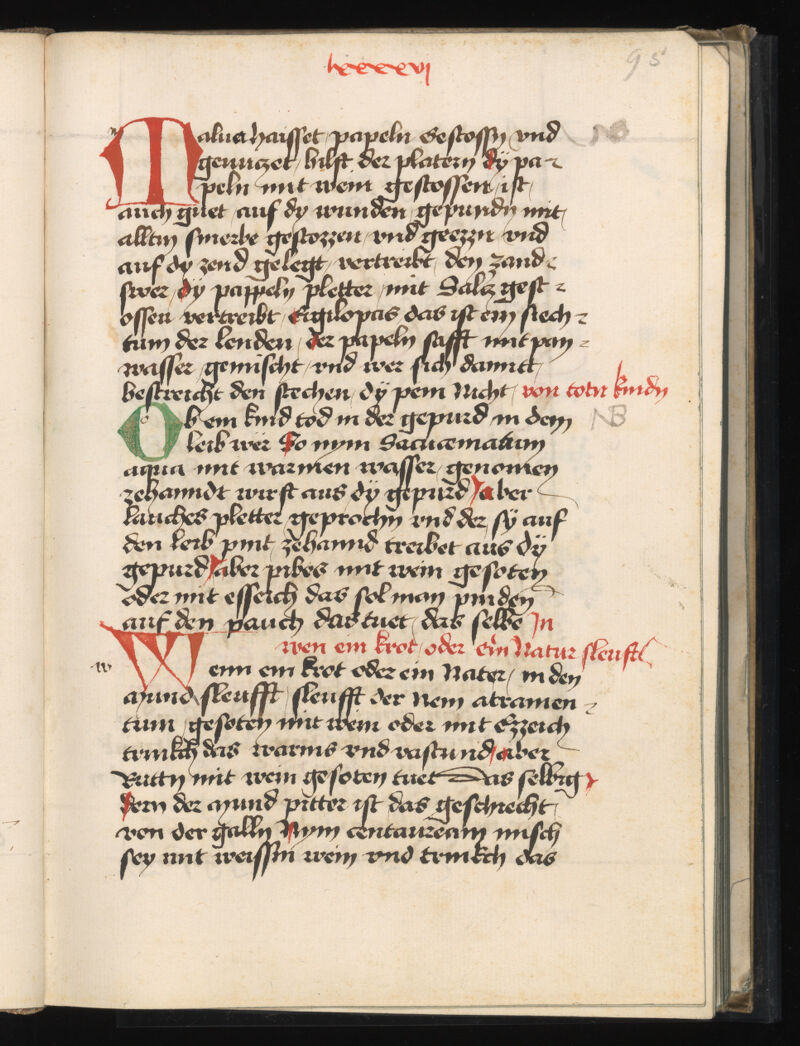 lxxxxvj
95
Malua haisset papeln Gestossn vnd NB
genuczet hilft der platern dÿ pa-
peln mit wein gestossen ist
auch guet auf dy wunden gepundn mit
alltm smerbe gestozzen vnd geezzn vnd
auf dy zend gelegt vertreibt den zand-
swer dÿ pappeln pletter mit Salcz gest-
ossen vertreibt Egilopas das ist ein siech-
tum der lenden der papeln safft mit pam-
wasser gemischt vnd wer sich damit
bestreicht den stechen dÿ pein nicht von totn kindn
Ob ein kind tod in der gepurd in dem NB
leib wer So nym
aqua mit warmen wasser genomen
zehanndt wirft aus dÿ gepurd aber
lauches pletter geprochn vnd der sÿ auf
den leib pint zehannd treibet aus dÿ
gepurd aber pibos mit wein gesoten
oder mit esseich das sol man pinden
auf den pauch das tuet das selbe In
wen ein krot oder ein Natur sleuft
w
Wenn ein krot oder ein Nater in den
mund sleufft sleufft der Nem atramen-
tum gesoten mit wein oder mit Ezzeich
trinkch das warms vnd vastund aber
Rutty mit wein gesoten tuet Das selbig
Dem der mund pitter ist das geschiecht
von der galln Nym centauream misch
sey mit weissm wein vnd trinkch das